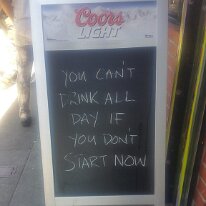 Coors
LIGHT
YOU CAN'T
DRINK ALL
DAY IF
YOU DON'T
START NOW